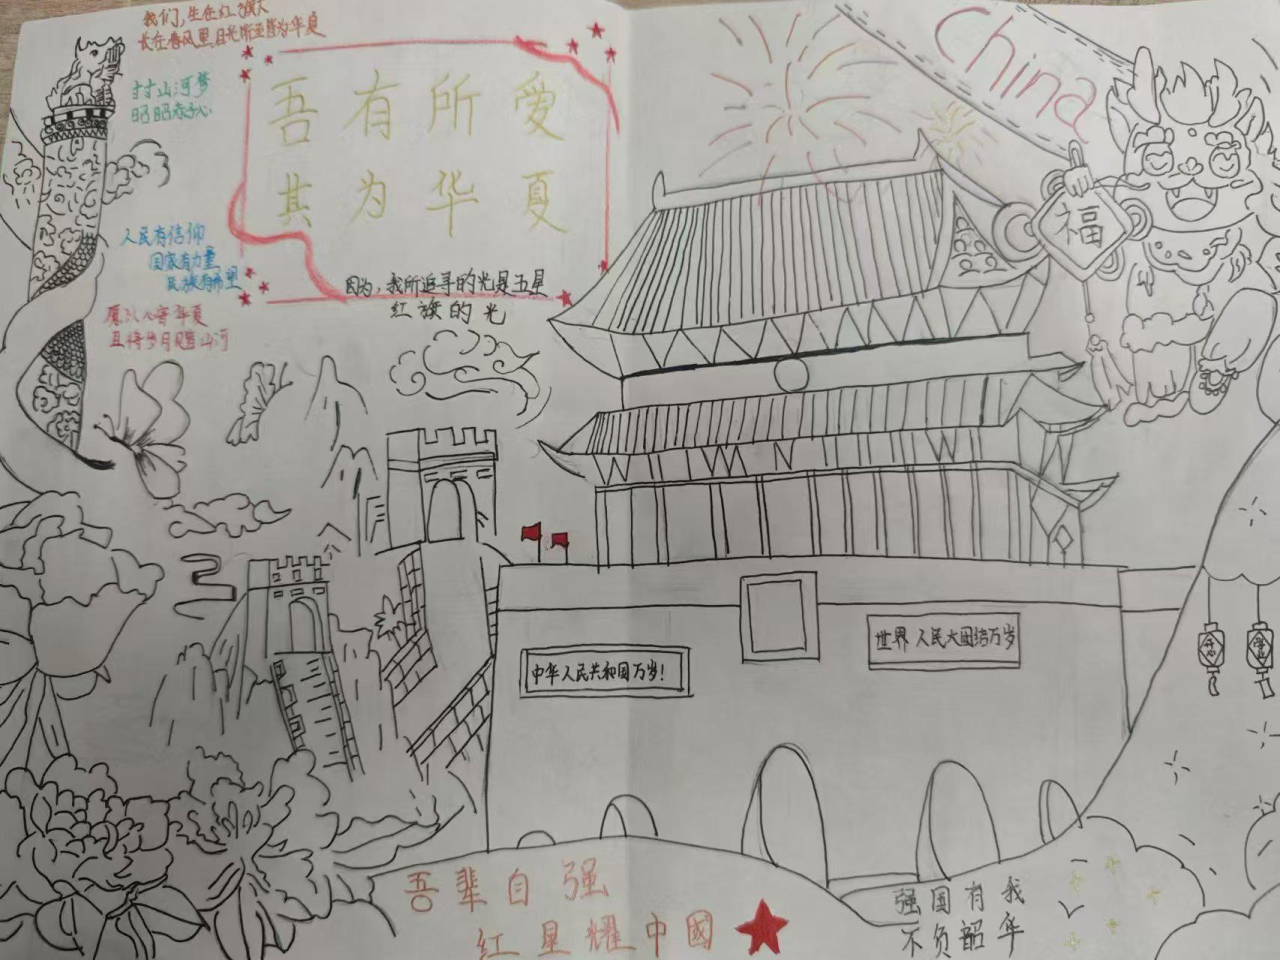 我们，生在红旗下
长在春风里，目光所至皆为华夏
China
山河梦
昭昭赤子心
吾有所爱
其为华夏
福
人民有信仰
国家有力量
民族有希望
因为，我所追寻的光是五星
红旗的光
愿以吾辈华夏
且待岁月赠山河
中华人民共和国万岁！
世界人民大团结万岁
吾辈自强
红星耀中國
强国有我
不负韶华